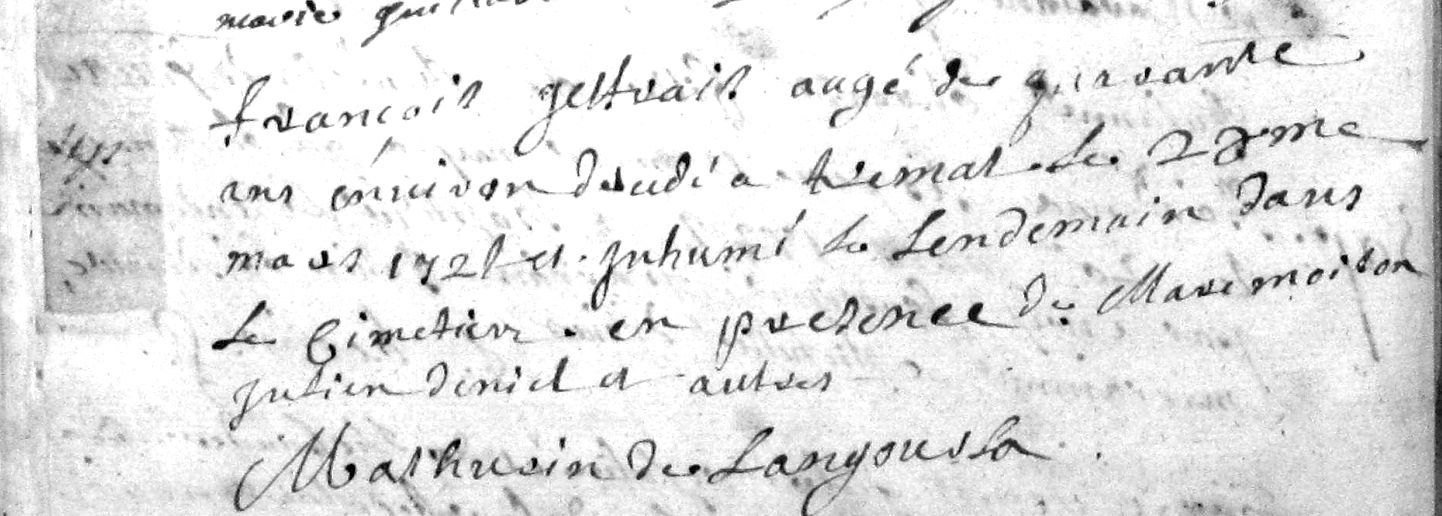 marie
françois gestrais augé de quarante
ans énuiron decedé a tremal le 28me
mars 1721 et juhumé le lendemain dans
le Cimetiere . en presence de Marc moison
julien deniel et autres
Mathurin de Langourla .